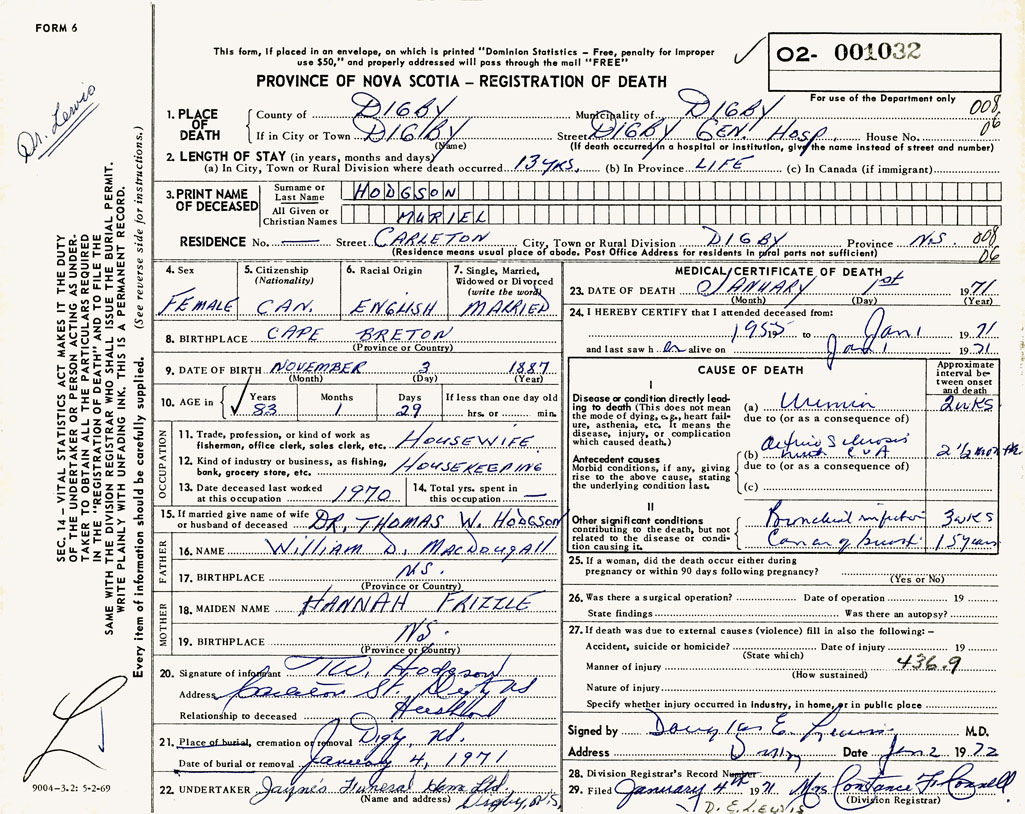 FORM 6
This form, if placed in an envelope, on which is printed "Dominion Statistics – Free, penalty for improper
use $50," and properly addressed will pass through the mail "FREE"
02- 001032
PROVINCE OF NOVA SCOTIA – REGISTRATION OF DEATH
For use of the Department only
Dr. Lewis
SEC. 14 – VITAL STATISTICS ACT MAKES IT THE DUTY
OF THE UNDERTAKER OR PERSON ACTING AS UNDER-
TAKER TO OBTAIN ALL THE PARTICULARS REQUIRED
IN THE "REGISTRATION OF DEATH" AND TO FILE THE
SAME WITH THE DIVISION REGISTRAR WHO SHALL ISSUE THE BURIAL PERMIT.
WRITE PLAINLY WITH UNFADING INK. THIS IS A PERMANENT RECORD.
Every item of information should be carefully supplied. (See reverse side for instructions.)
9004-3.2: 5-2-69
1. PLACE OF DEATH
County of DIGBY Municipality of DIGBY 008
If in City or Town DIGBY Street DIGBY GEN. HOSP. House No. 06
(Name) (If death occurred in a hospital or institution, give the name instead of street and number)
2. LENGTH OF STAY (in years, months and days)
(a) In City, Town or Rural Division where death occurred 13 YRS. (b) In Province LIFE (c) In Canada (if immigrant)
3. PRINT NAME OF DECEASED
Surname or Last Name HODGSON
All Given or Christian Names MURIEL
RESIDENCE No. — Street CARLETON City, Town or Rural Division DIGBY Province N.S. 008
(Residence means usual place of abode. Post Office Address for residents in rural parts not sufficient) 06
4. Sex 5. Citizenship (Nationality) 6. Racial Origin 7. Single, Married, Widowed or Divorced (write the word)
FEMALE CAN. ENGLISH MARRIED
8. BIRTHPLACE CAPE BRETON
(Province or Country)
9. DATE OF BIRTH NOVEMBER 3 1887
(Month) (Day) (Year)
10. AGE in Years Months Days If less than one day old
83 1 29 hrs. or min.
OCCUPATION
11. Trade, profession, or kind of work as
fisherman, office clerk, sales clerk, etc. HOUSEWIFE
12. Kind of industry or business, as fishing,
bank, grocery store, etc. HOUSEKEEPING
13. Date deceased last worked at this occupation 1970 14. Total yrs. spent in this occupation —
15. If married give name of wife
or husband of deceased DR. THOMAS W. HODGSON
FATHER
16. NAME WILLIAM D. MACDOUGALL
17. BIRTHPLACE N.S.
(Province or Country)
MOTHER
18. MAIDEN NAME HANNAH FRIZZLE
19. BIRTHPLACE N.S.
(Province or Country)
20. Signature of informant T.W. Hodgson
Address Carleton St. Digby NS
Relationship to deceased Husband
21. Place of burial, cremation or removal Digby, N.S.
Date of burial or removal January 4, 1971
22. UNDERTAKER Jayne's Funeral Home Ltd.
(Name and address) Digby, N.S.
MEDICAL CERTIFICATE OF DEATH
23. DATE OF DEATH JANUARY 1st 1971
(Month) (Day) (Year)
24. I HEREBY CERTIFY that I attended deceased from:
1955 to Jan 1 1971
and last saw her alive on Jan 1 1971
CAUSE OF DEATH
Approximate interval between onset and death
I
Disease or condition directly leading to death (This does not mean
the mode of dying, e.g., heart failure, asthenia, etc. It means the
disease, injury, or complication which caused death.)
(a) Uremia 2 wks
due to (or as a consequence of)
Antecedent causes
Morbid conditions, if any, giving rise to the above cause, stating the underlying condition last.
(b) Arterio Sclerosis
CVA 2 ½ month
due to (or as a consequence of)
(c)
II
Other significant conditions
contributing to the death, but not related to the disease or condition causing it.
Bronchial infection 3 wks
Cancer of breast 15 years
25. If a woman, did the death occur either during
pregnancy or within 90 days following pregnancy?
(Yes or No)
26. Was there a surgical operation? Date of operation 19
State findings Was there an autopsy?
27. If death was due to external causes (violence) fill in also the following: –
Accident, suicide or homicide? Date of injury 19
(State which)
Manner of injury 436.9
(How sustained)
Nature of injury
Specify whether injury occurred in industry, in home, or in public place
Signed by Douglas E. Lewis M.D.
Address Digby Date Jan 2 1972
28. Division Registrar's Record Number
29. Filed January 4th 1971 Mrs Constance F. Connell
(Division Registrar)
D. E. LEWIS